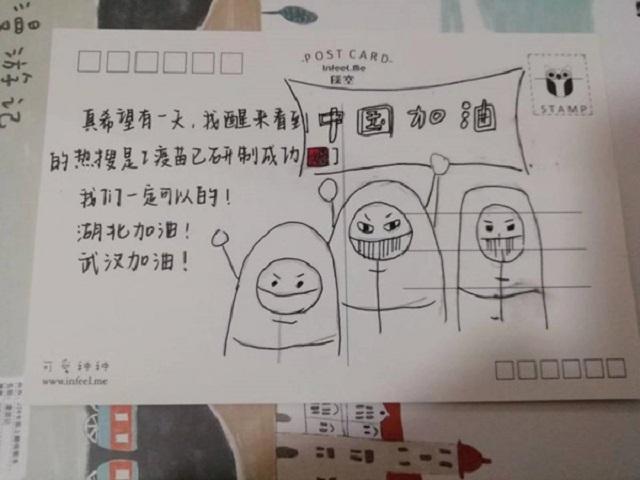 POST CARD
Infeel.Me
STAMP
中国加油
真希望有一天,我醒来看到
的热搜是[疫苗已研制成功 ]
我们一定可以的!
湖北加油!
武汉加油!
www.infeel.me